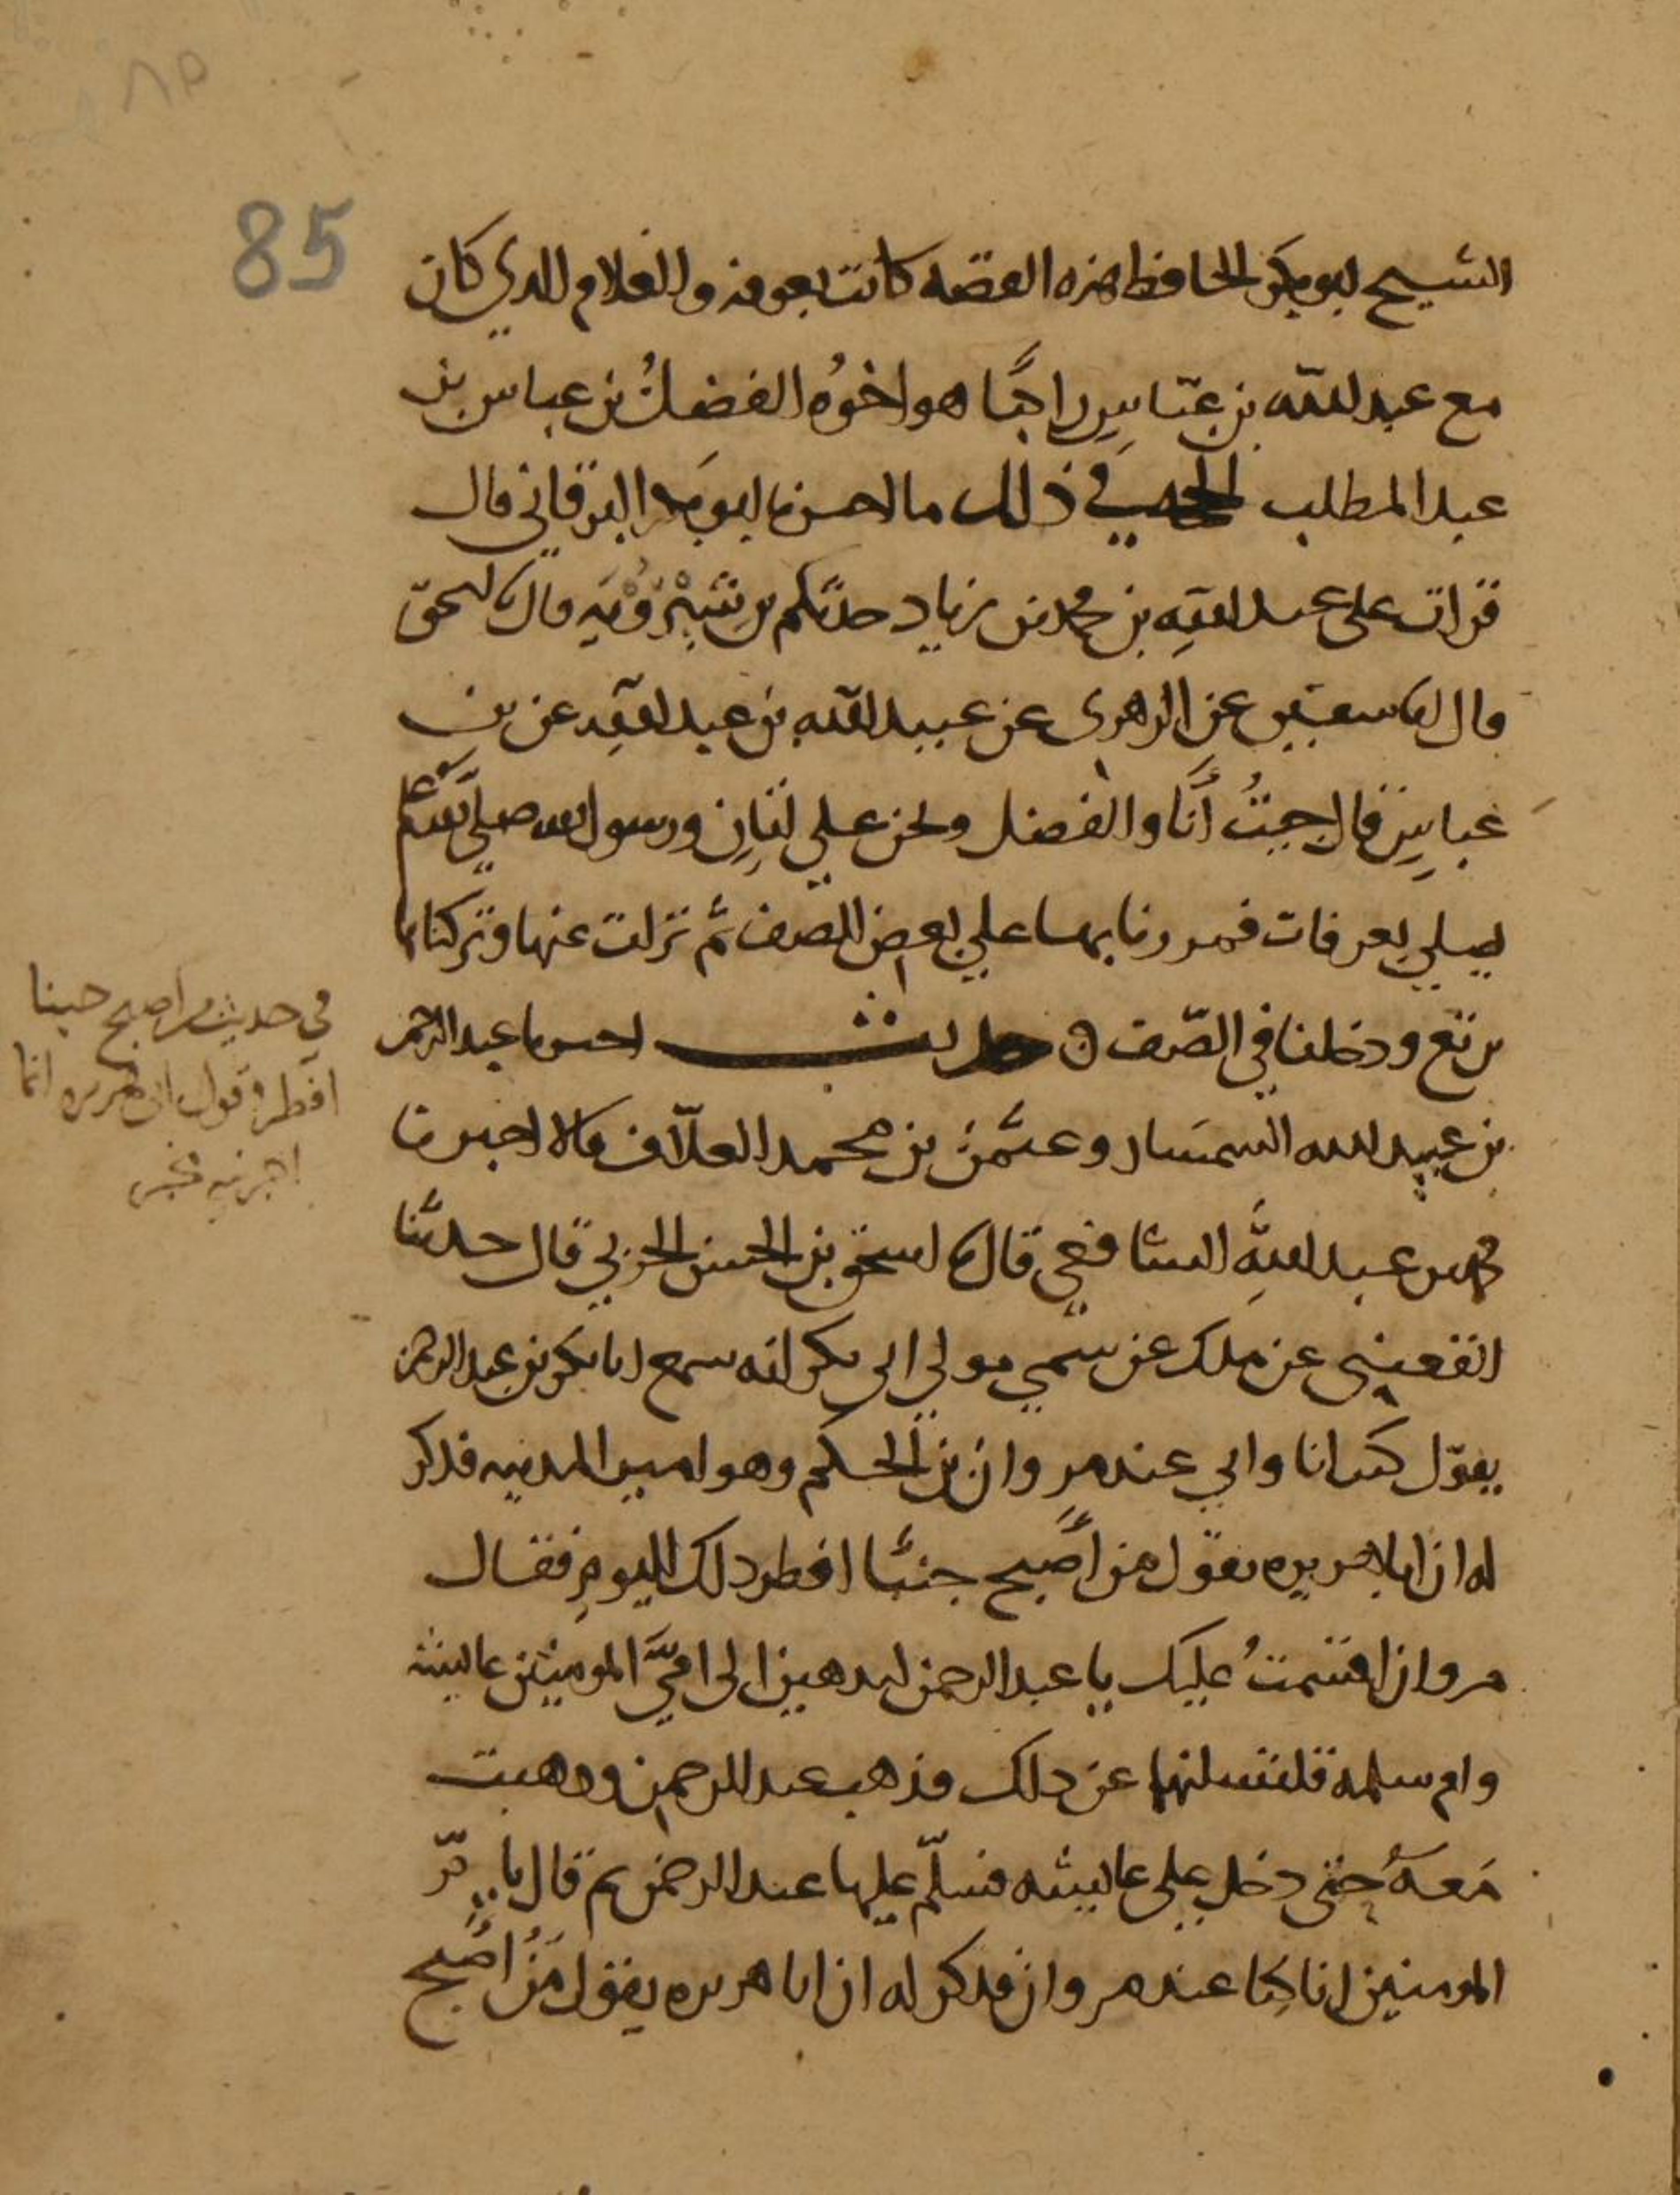 ٨٥
85
الشيخ ابو بكر الحافظ هذه القصه كانت بعرفه والغلام الدي كان
مع عبد الله بن عبّاسٍ راكبًا هو اخوُه الفضلُ بن عباس بن
عبد المطلب الحجه في ذلك ما اخبرنا ابو بكر البرقاني قال
قرات على عبد اللهِ بن محمد بن زياد حدثكم بن شِيْرَوَيْهِ قال نا اسحق
قال انا سفين عن الزهري عن عبيد الله بن عبد اللهِ عن بن
عباسٍ قال جيتُ أنَا والفضل ونحن على اتانٍ ورسول الله صلى الله عليه
يصلي بعرفات فمررنا بها على بعض الصف ثم نزلت عنها وتركناها
ترتع ودخلنا في الصّف ه حديث اخبرنا عبد الرحمن
بن عبيد الله السمسَار وعثمٰن بن محمد العلّاف قالا اخبرنا
محمد بن عبد اللهِ الشافعي قال نا اسحق بن الحسن الحربي قال حدثنا
القعنبي عن ملك عن سُمي مولى ابي بكر انه سمع ابا بكر بن عبد الرحمن
يقول كنت انا وابي عند مروان بن الحكم وهو امير المدينه فذكر
له ان ابا هريره يقول من أصبح جنبًا افطر ذلك اليوم فقال
مروان اقسمتُ عليك يا عبد الرحمن لتذهبن الى امّي المومنين عايشه
وام سلمه فلتسلنهما عن ذلك فذهب عبد الرحمن وذهبت
مَعهُ حتى دخل على عايشه فسلّم عليها عبد الرحمن ثم قال يا امّ
المومنين انا كنا عند مروان فذكر له ان ابا هريره يقول مَنْ أصبح
في حديث من اصبح جنبا
افطر وقول ابي هريره انما
اخبرنيه مخبر